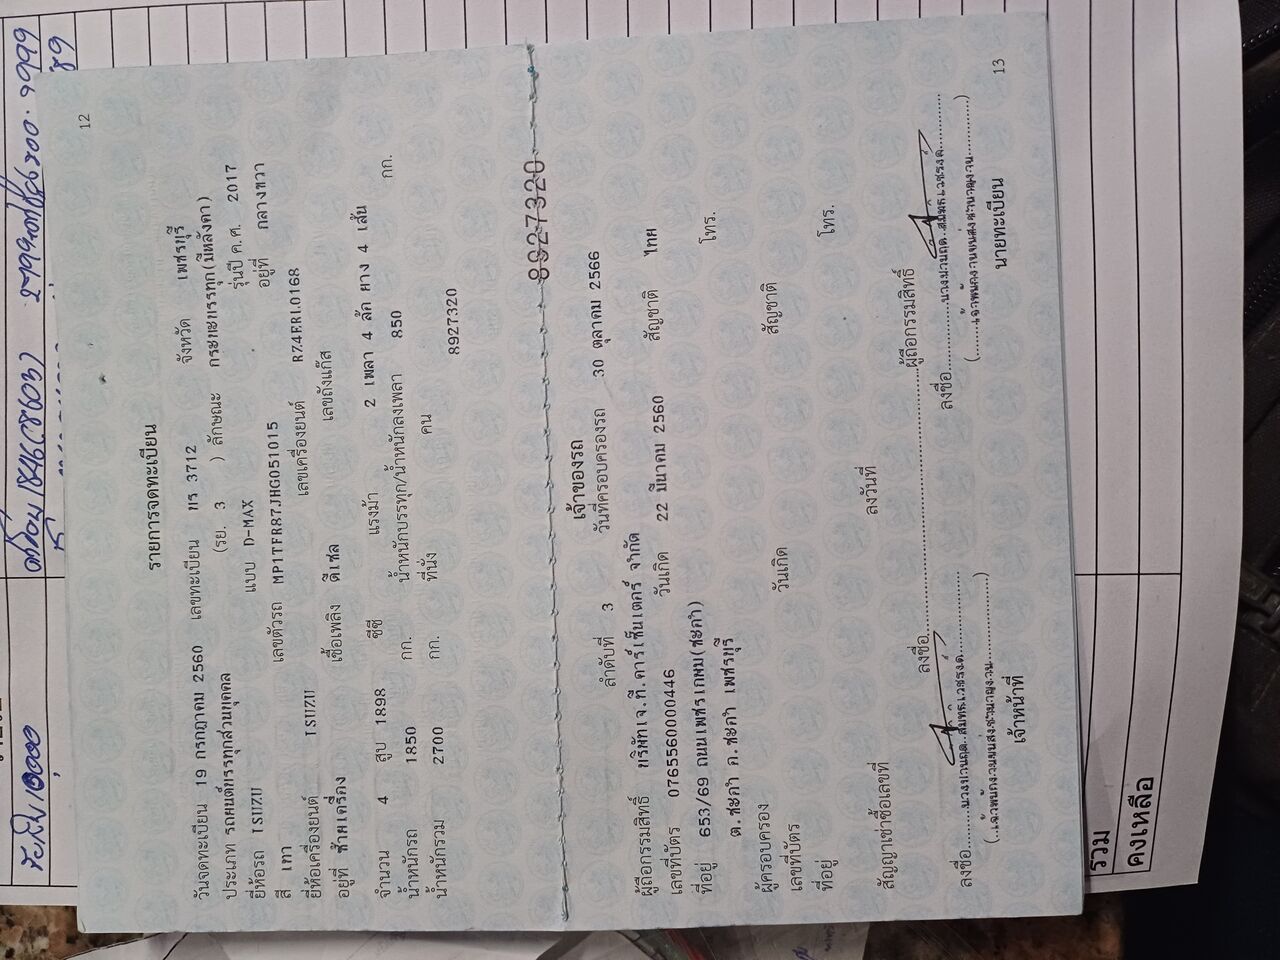 12
รายการจดทะเบียน
วันจดทะเบียน 19 กรกฎาคม 2560 เลขทะเบียน 3712 จังหวัด เพชรบุรี
ประเภท รถยนต์บรรทุกส่วนบุคคล (รย. 3 ) ลักษณะ กระบะบรรทุก(มีหลังคา)
ยี่ห้อรถ ISUZU แบบ D-MAX รุ่นปี ค.ศ. 2017
สี เทา เลขตัวรถ MP1TFR87JHG051015 อยู่ที่ กลางขวา
ยี่ห้อเครื่องยนต์ ISUZU เลขเครื่องยนต์
อยู่ที่ ซ้ายเครื่อง เชื้อเพลิง ดีเซล เลขถังแก๊ส
จำนวน 4 สูบ 1898 ซีซี แรงม้า 2 เพลา 4 ล้อ ยาง 4 เส้น
น้ำหนักรถ 1850 กก. น้ำหนักบรรทุก/น้ำหนักลงเพลา 850 กก.
น้ำหนักรวม 2700 กก. ที่นั่ง คน
8927320
8927320
เจ้าของรถ
ลำดับที่ 3 วันที่ครอบครองรถ 30 ตุลาคม 2566
ผู้ถือกรรมสิทธิ์ บริษัทเจ.ที.คาร์เซ็นเตอร์ จำกัด
เลขที่บัตร 0765560000446 วันเกิด 22 มีนาคม 2560 สัญชาติ ไทย
ที่อยู่ 653/69 ถนนเพชรเกษม(ชะอำ) โทร.
ต.ชะอำ อ.ชะอำ เพชรบุรี
ผู้ครอบครอง
เลขที่บัตร วันเกิด สัญชาติ
ที่อยู่ โทร.
สัญญาเช่าซื้อเลขที่ ลงวันที่
ลงชื่อ ผู้ถือกรรมสิทธิ์
ลงชื่อ ลงชื่อ
เจ้าหน้าที่ นายทะเบียน
13
รวม
คงเหลือ